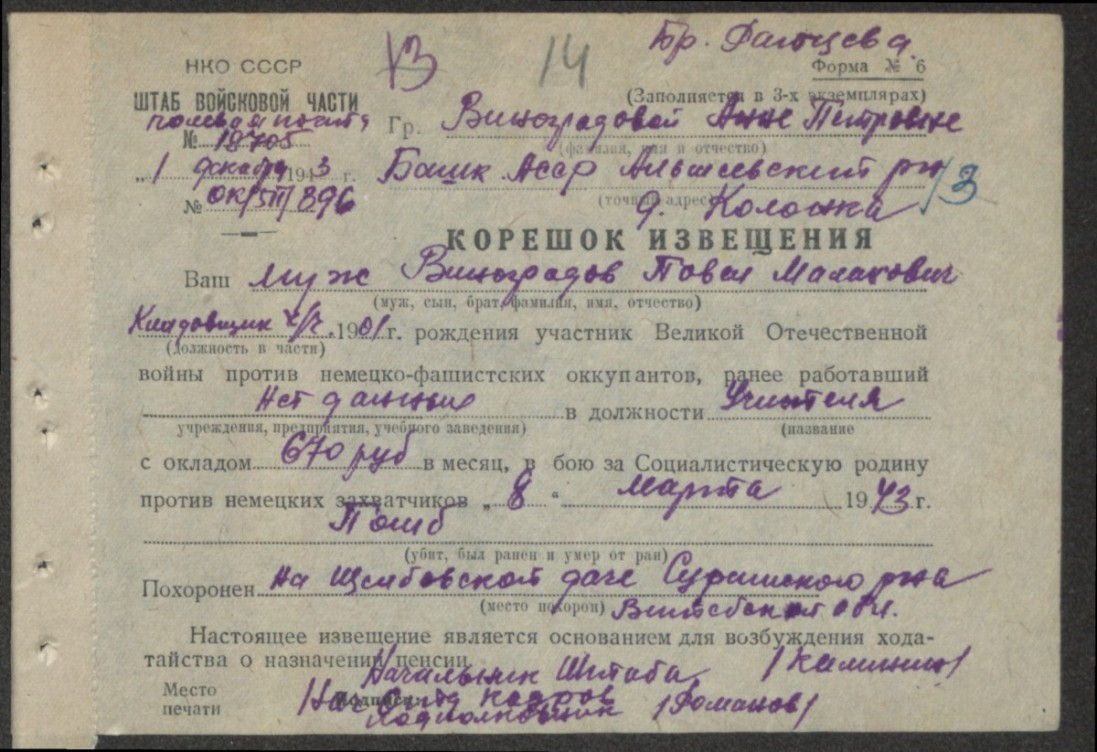 13 14 Бр. Фалцева
НКО СССР
Форма № 6
ШТАБ ВОЙСКОВОЙ ЧАСТИ
(Заполняется в 3-х экземплярах)
полевая почта
№ 19705
Гр. Виноградовой Анне Петровне
(фамилия, имя и отчество)
„1 декабря 1943 г.
Башк Асср Альшеевский р-н 13
№ ОК/511/896
(точный адрес) д. Колонка
КОРЕШОК ИЗВЕЩЕНИЯ
Ваш муж Виноградов Павел Малахович
(муж, сын, брат, фамилия, имя, отчество)
Кладовщик х/ч. 1901 г. рождения участник Великой Отечественной
(должность в части)
войны против немецко-фашистских оккупантов, ранее работавший
Нет данных в должности Учителя
(учреждения, предприятия, учебного заведения) (название
с окладом 670 руб в месяц, в бою за Социалистическую родину
против немецких захватчиков „8“ марта 1943 г.
Погиб
(убит, был ранен и умер от ран)
Похоронен на Щелбовской даче Суражского р-на
(место похорон) Витебской обл.
Настоящее извещение является основанием для возбуждения хода-
тайства о назначении пенсии
Начальник Штаба /Калинин/
Место
печати
Подписи:
/Нач отд кадров
Подполковник /Романов/